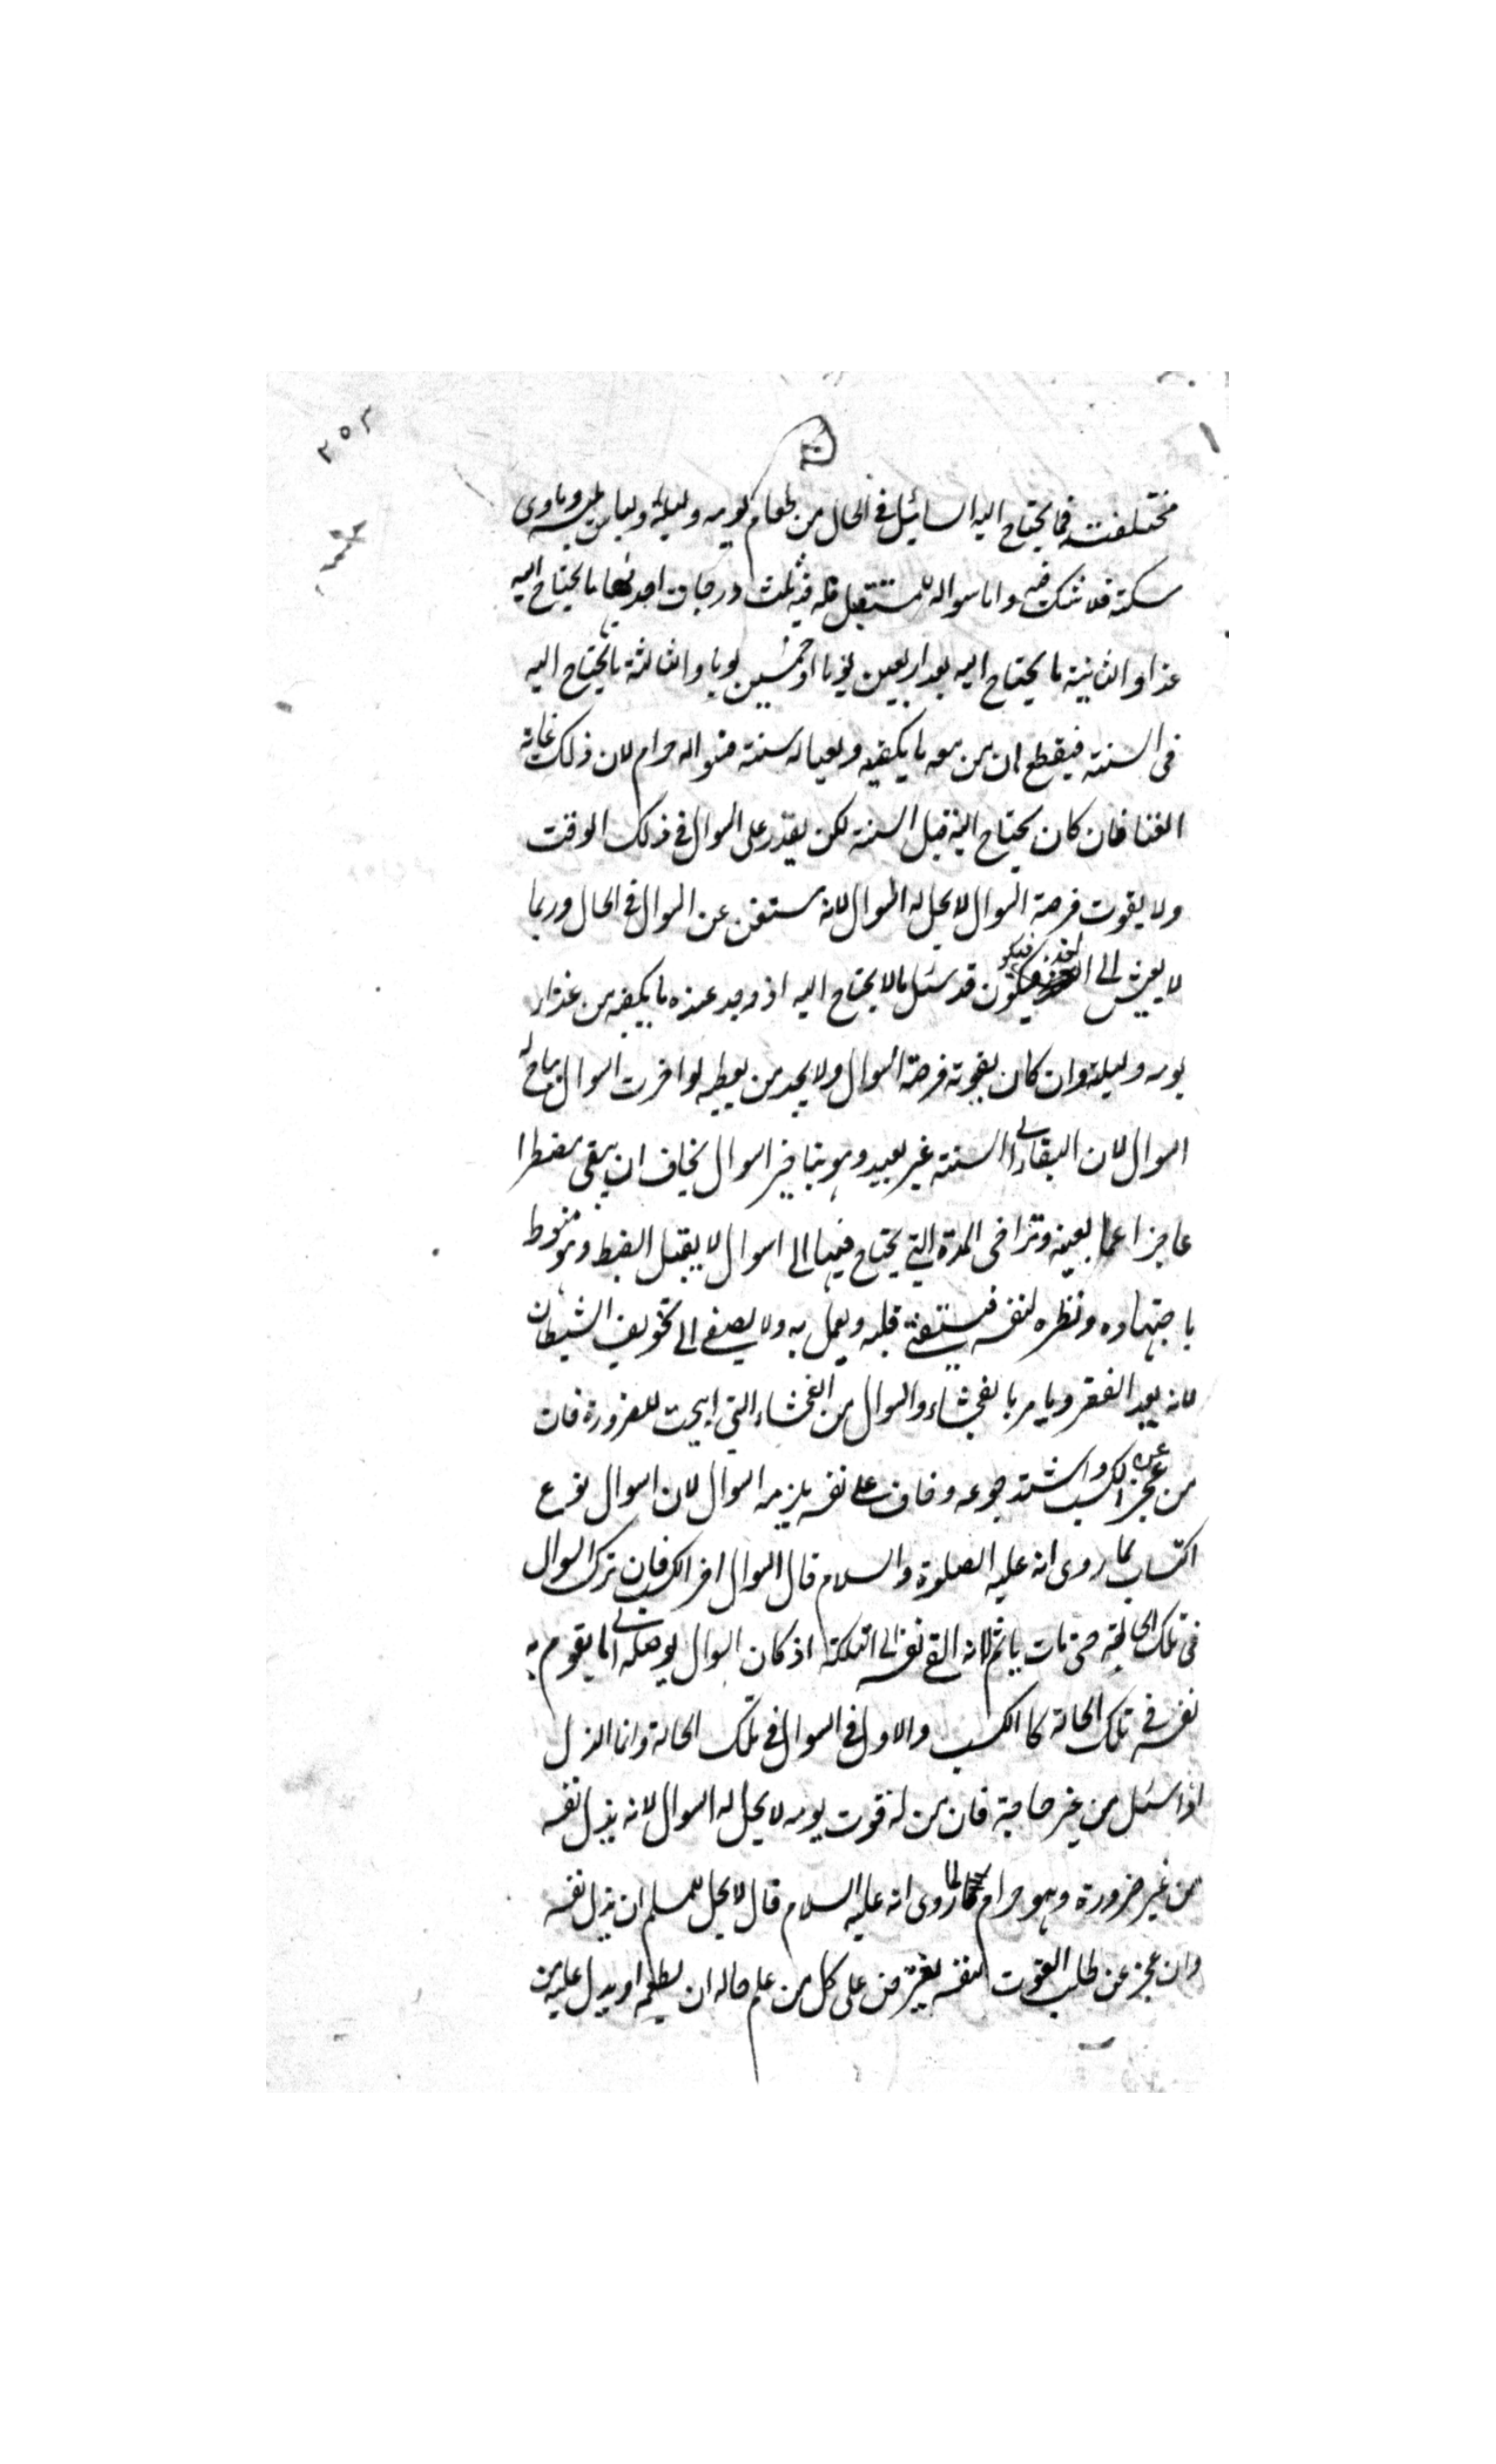 ٣٥٣
مختلفته فما يحتاج اليه السائل فى الحال من طعام يومه وليلة ولباس يلبسه وماوى
سكنه فلا شك فيه واما سواله للمستقبل فله فيه ثلث درجات احديها ما يحتاج اليه
غذا والثانية ما يحتاج اليه بعد اربعين يوما او خمسين يوما والثالثة ما يحتاج اليه
فى السنته فيقطع ان من معه ما يكفيه ولعياله سنته فسواله حرام لان ذلك غاية
الغنا فان كان يحتاج اليه قبل السنة لكن يقدر على السوال فى ذلك الوقت
ولا يفوت فرصة السوال لا يحل له السوال لانه مستغن عن السوال فى الحال وربما
لا يعيش الى الغد فيكون قد سئل مالا يحتاج اليه اذ وجد عنده ما يكفيه من غذاء
يومه وليلة وان كان يفوته فرصة السوال ولا يجد من يعطيه لو اخرت السوال يباح له
السوال لان البقاء الى السنته غير بعيد وهو بتاخير السوال يخاف ان يبقى مضطرا
عاجزا عما يعينه وتراخى المدة التى يحتاج فيها الى السوال لا يقبل الضبط وهو منوط
باجتهاده ونظره لنفسه فيستفتى قلبه ويعمل به ولا يصغى الى تخويف الشيطان
لانه يعد الفقر ويامر بالفحشاء والسوال من الفحشاء التى ابيحت للضرورة فان
من عجز عن الكسب واشتد جوعه وخاف على نفسه يلزمه السوال لان السوال نوع
اكتساب لما روى انه عليه الصلوة والسلام قال السوال اخر الكسب فان ترك السوال
فى تلك الحالة حتى مات ياثم لانه القى نفسه الى التهلكة اذ كان السوال يوصله الى ما يقوم به
نفسه فى تلك الحالة كا الكسب والاول فى السوال فى تلك الحالة وانما الذل
اذا سئل من غير حاجة فان من له قوت يومه لا يحل له السوال لانه يذل نفسه
من غير ضرورة وهو حرام لما روى انه عليه السلام قال لا يحل للمسلم ان يذل نفسه
وان عجز عن طلب القوت لنفسه يفترض على كل من علم حاله ان يطعمه او يدل عليه من